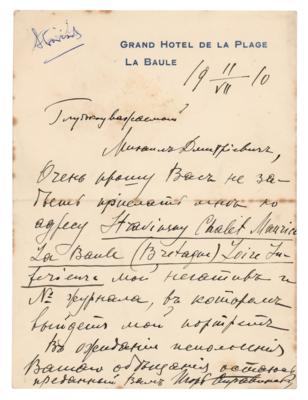 GRAND HOTEL DE LA PLAGE
LA BAULE
19 11/VII 10
Глубокоуважаемый
Михаилъ Дмитріевичъ,
Очень прошу Васъ не за-
быть прислать мнѣ по
адресу Stravinsky Chalet Maurice
La Baule (Bretagne) Loire In-
férieure мой негативъ и
№ журнала, въ которомъ
выйдетъ мой портретъ
Въ ожиданіи исполненія
Вашего обѣщанія остаюсь
преданный Вамъ Игорь Стравинскій